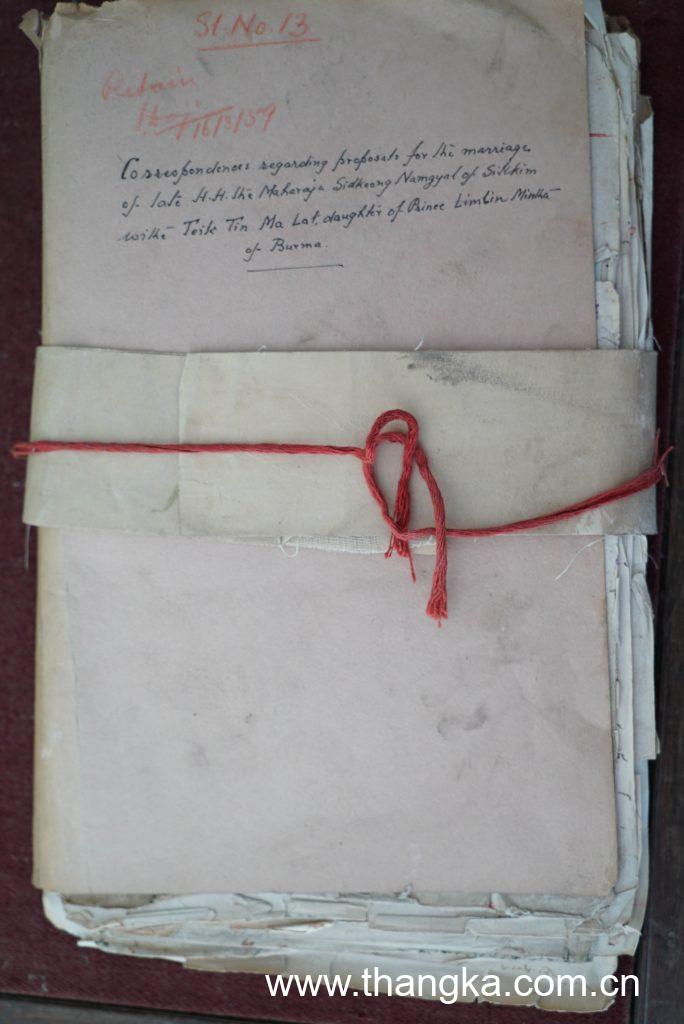 Sl. No. 13
Retain
16/3/59
Correspondences regarding proposals for the marriage
of late H.H. the Maharaja Sidkeong Namgyal of Sikkim
with Teik Tin Ma Lat, daughter of Prince Limbin Mintha
of Burma.
www.thangka.com.cn